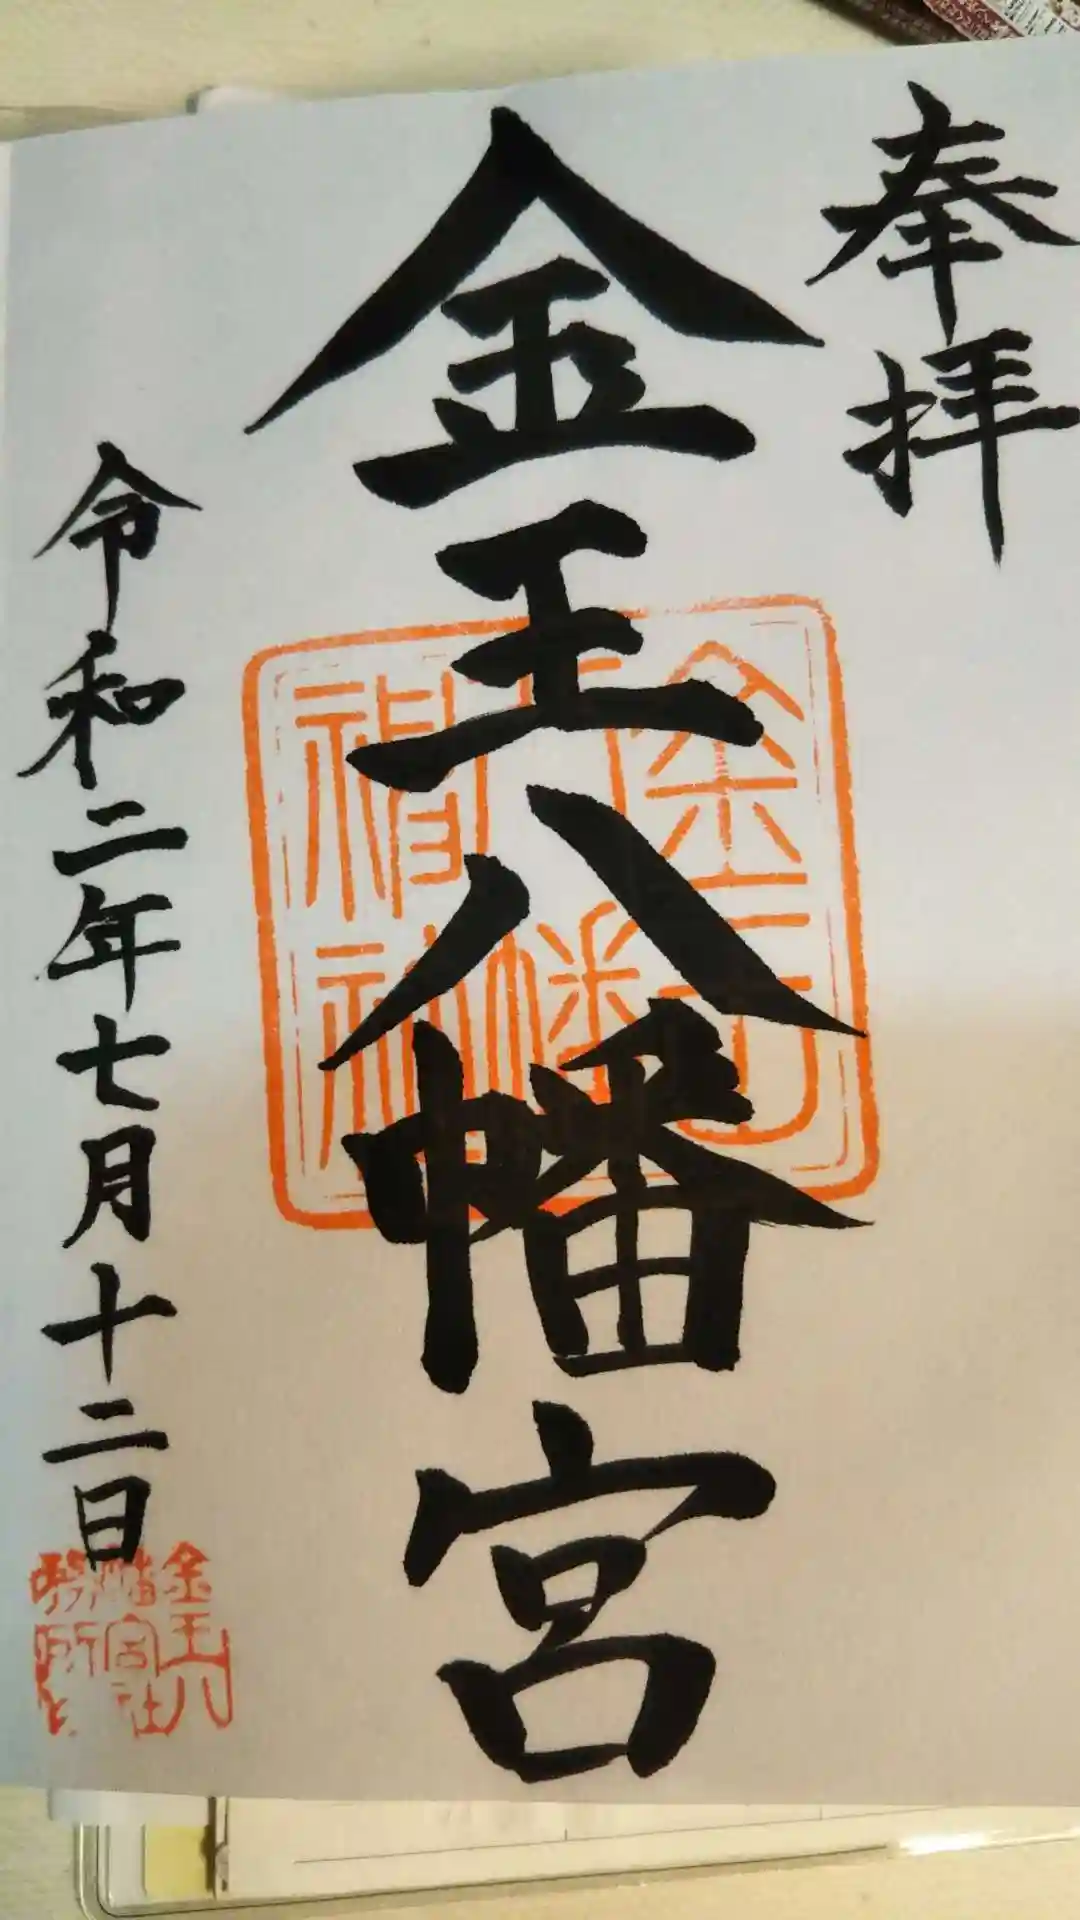 奉拝
金王八幡宮
令和二年七月十二日
金王八
幡宮社
務所之